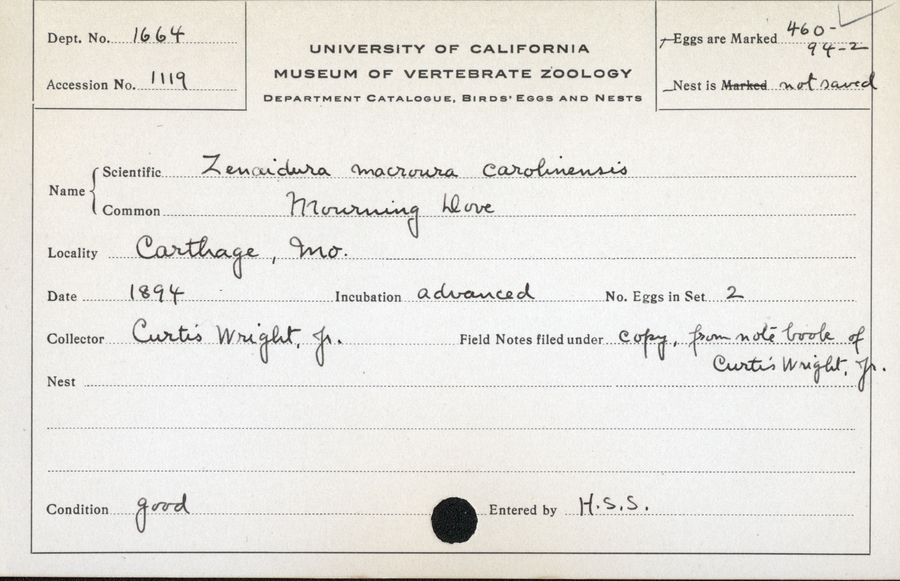 Dept. No. 1664
Accession No. 1119
UNIVERSITY OF CALIFORNIA
MUSEUM OF VERTEBRATE ZOOLOGY
DEPARTMENT CATALOGUE, BIRDS' EGGS AND NESTS
Eggs are Marked 460-
94-2
Nest is Marked not saved
Name
Scientific Zenaidura macroura carolinensis
Common Mourning Dove
Locality Carthage, Mo.
Date 1894 Incubation advanced No. Eggs in Set 2
Collector Curtis Wright, Jr. Field Notes filed under copy, from note book of
Curtis Wright, Jr.
Nest
Condition good Entered by H.S.S.